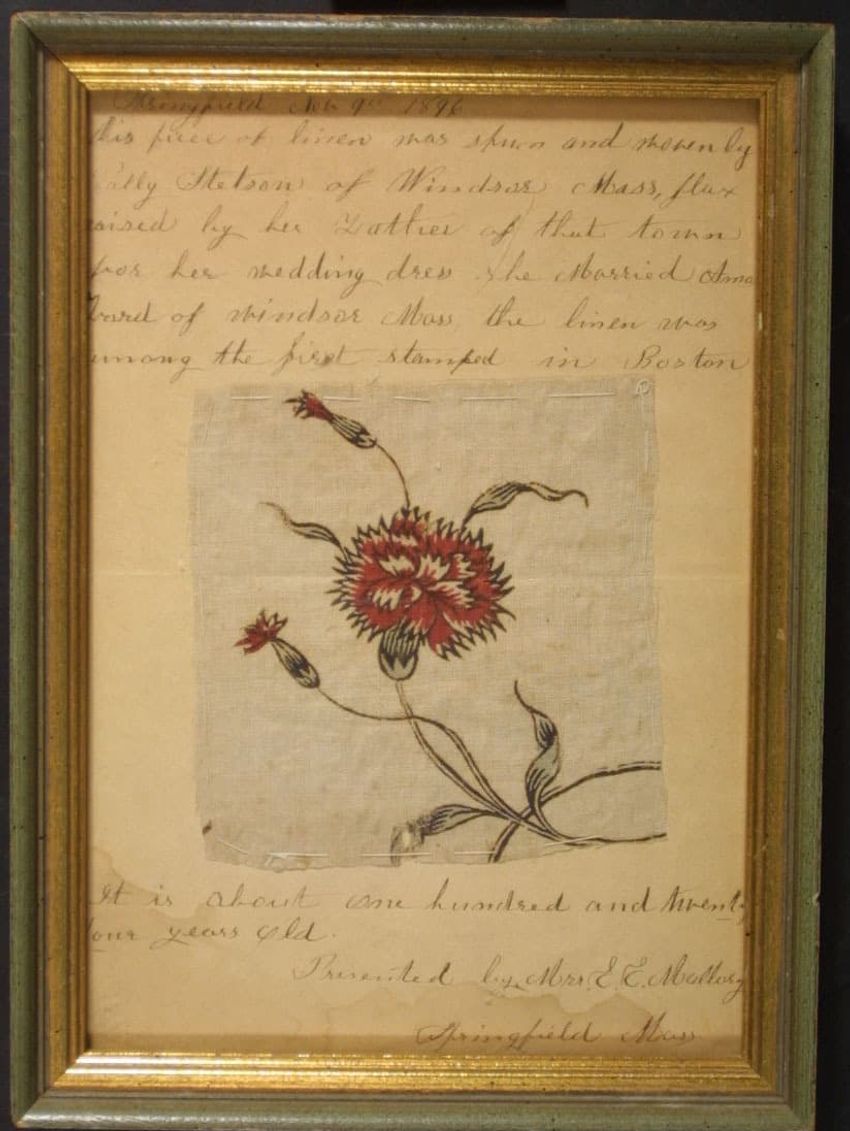 Springfield Feb 9th 1896
his piece of linen was spun and woven by
ally Stetson of Windsor Mass, flax
raised by her Father of that town
for her wedding dress she Married Amo
ward of windsor Mass the linen was
among the first stamped in Boston
It is about one hundred and twenty
four years old.
Presented by Mrs. E. E. Mallory
Springfield Mass